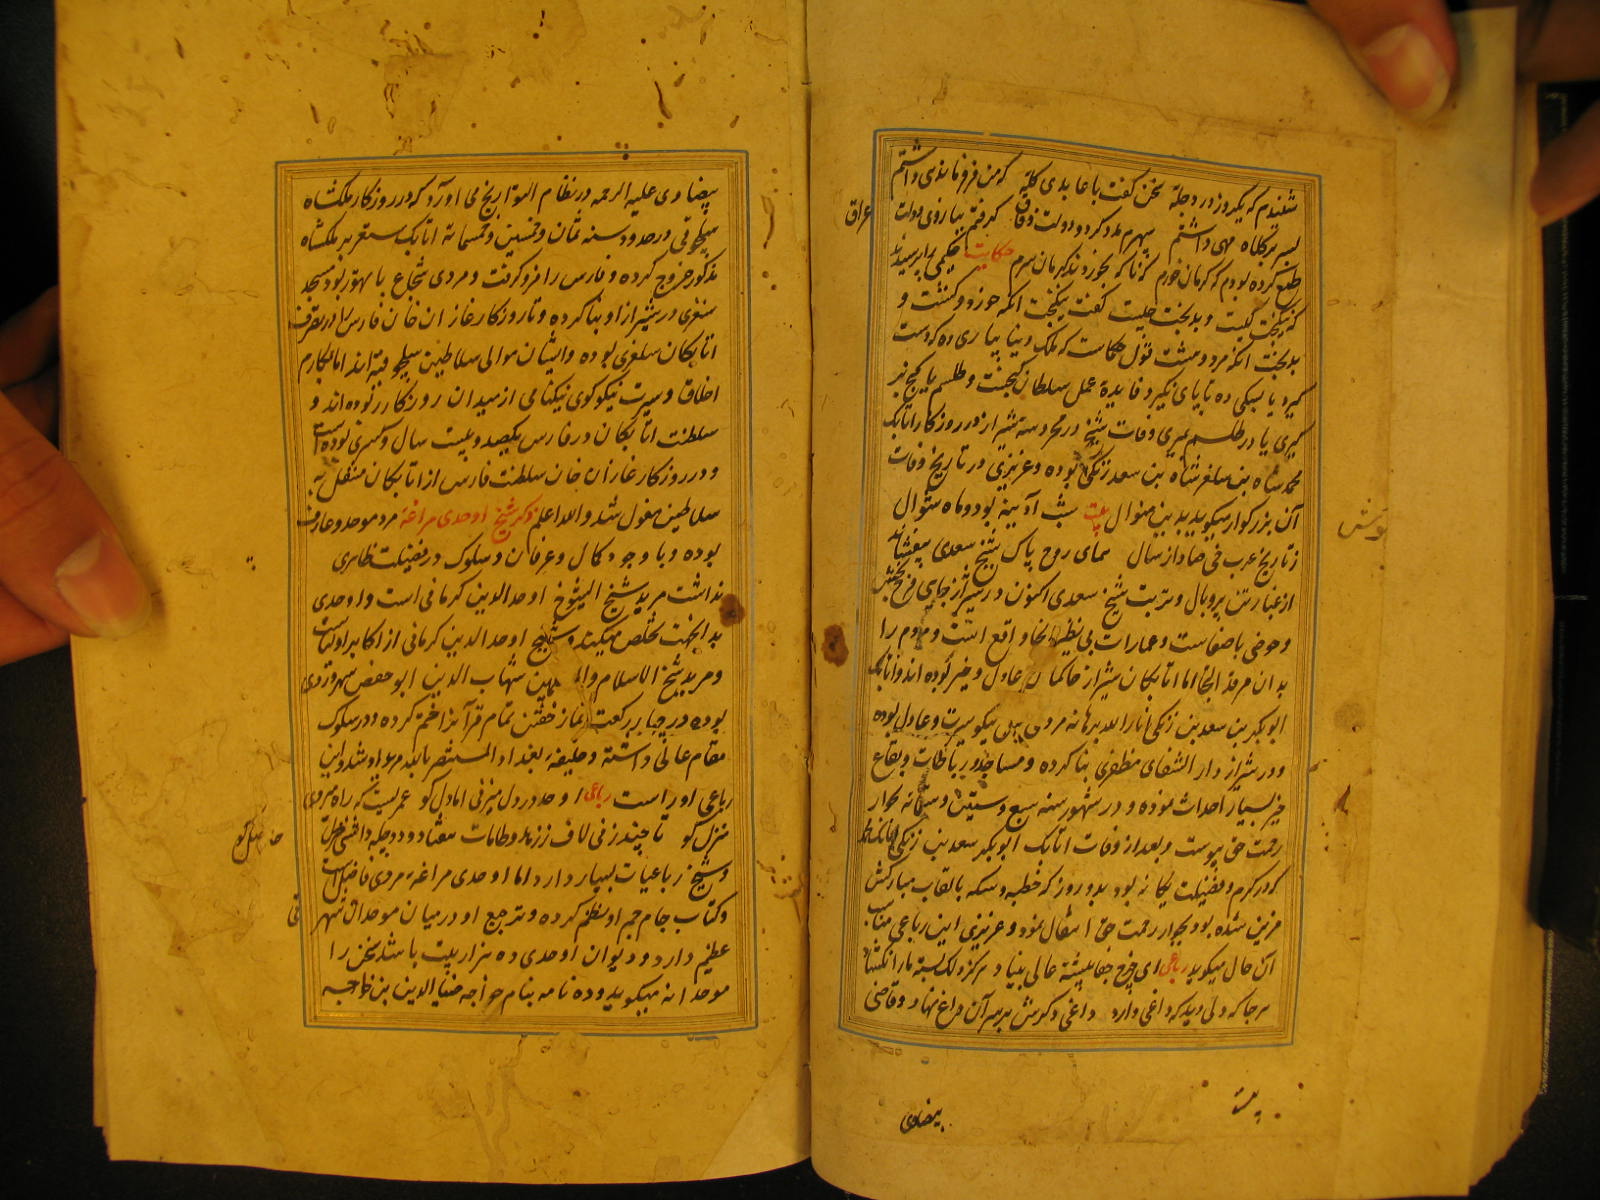 شنیدم که یکروز در دجلهٔ سخن گفت با عابدی کلهٔ که من فر فرماندهی داشتم
بسر بر کلاه مهی داشتم سپهرم مدد کرد و دولت وفاق گرفتم ببازوی دولت
عراق
طمع کرده بودم که کرمان خورم که ناکه بخوردند کرمان سرم حکایت حکیمی را پرسیدند
که نیکبخت کیست و بدبخت چیست گفت نیکبخت آنکه خورد و کشت و
بدبخت آنکه مرد و هشت قول حکماست که ملک دنیا بیاری ده که دست
گیرد یا بسکی ده تا پای نگیرد فایدهٔ عمل سلطان گنجست و طلسم یا گنج بر
گیری یا در طلسم بمیری وفات شیخ در محروسه شیراز در روزگار اتابک
محمد شاه بن سلغر شاه بن سعد زنگی بوده و عزیزی در تاریخ وفات
آن بزرگوار میگوید بدین منوال بیت شب آدینه بود و ماه شوال
ز تاریخ عرب خ ص ا د از سال همای روح پاک شیخ سعدی بیفشاند
از غبار تن پر و بال و تربت شیخ سعدی اکنون در شیراز جای فرح بخش
و حوضی باصفاست و عمارات بی نظیر آنجا واقع است و مردم را
بدان مرقد التجا اما اتابکان شیراز حاکمان عادل و خیر بوده اند و اتابک
ابوبکر بن سعد بن زنگی انار الله برهانه مردی نیکو سیرت و عادل بوده
و در شیراز دار الشفای مظفری بنا کرده و مساجد و رباطات و بقاع
خیر بسیار احداث نموده و در شهور سنه سبع و ستین و ستمانه بجوار
رحمت حق پیوست و بعد از وفات اتابک ابوبکر سعد بن زنگی اتابک محمد
که در کرم و فضیلت یگانه بود بدو روز که خطبه و سکه بالقاب مبارکش
مزین شده بود بجوار رحمت حق انتقال نمود و عزیزی این رباعی مناسب
آن حال میگوید رباعی ای چرخ جفا پیشهٔ عالی بنیاد هرگز دل بسته ما را نگشاد
هر جا که دلی دید که داغی دارد داغی دگرش بر سر آن داغ نهاد و قاضی
بیضاوی
بیضاوی علیه الرحمه در نظام التواریخ می آورد که در روزگار ملکشاه
سلجوقی در حدود سنه ثمان و خمسین و خمسمائة اتابک سنقر بر ملکشاه
مذکور خروج کرده و فارس را فرو گرفت و مردی شجاع با تهور بود مسجد
سنقری در شیراز او بنا کرده و تا روزگار غازان خان فارس در تصرف
اتابکان سلغری بوده و ایشان موالی سلاطین سلجوقیه اند اما بمکارم
اخلاق و سیرت نیکو گوی نیکنامی از میدان روزگار ربوده اند و
سلطنت اتابکان در فارس یکصد و بیست سال و کسری بوده است
و در روزگار غازان خان سلطنت فارس از اتابکان منتقل به
سلاطین مغول شد والله اعلم ذکر شیخ اوحدی مراغه مرد موحد و عارف
بوده و با وجود کمال و عرفان و سلوک در فضیلت ظاهری
نداشت مرید شیخ الشیوخ اوحد الدین کرمانی است و اوحدی
بدانجهت تخلص میکند و شیخ اوحد الدین کرمانی از اکابر اولیاست
و مرید شیخ الاسلام و المسلمین شهاب الدین ابو حفص سهروردی
بوده در چهار رکعت نماز خفتن تمام قرآنرا ختم کرده و در سلوک
مقام عالی داشته و خلیفه بغداد المستنصر بالله مرید او شد و این
رباعی او راست رباعی اوحد در دل میزنی آما دل کو عمریست که راه میروی
منزل کو تا چند زنی لاف ز زهد و طامات هفتاد و دو چله داشتی
حاصل کو
و شیخ رباعیات بسیار دارد اما اوحدی مراغهٔ مردی فاضل است
و کتاب جام جم او نظم کرده و ترجیع او در میان موحدان شهرتی
عظیم دارد و دیوان اوحدی ده هزار بیت باشد سخن را
موحدانه میگوید و ده نامه بنام خواجه ضیاء الدین بن خواجه